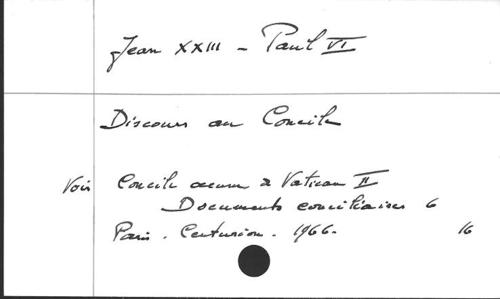 Jean XXIII - Paul VI
Discours au Concile
Voir Concile oecum à Vatican II
Documents conciliaires 6
Paris. Centurion. 1966. 16